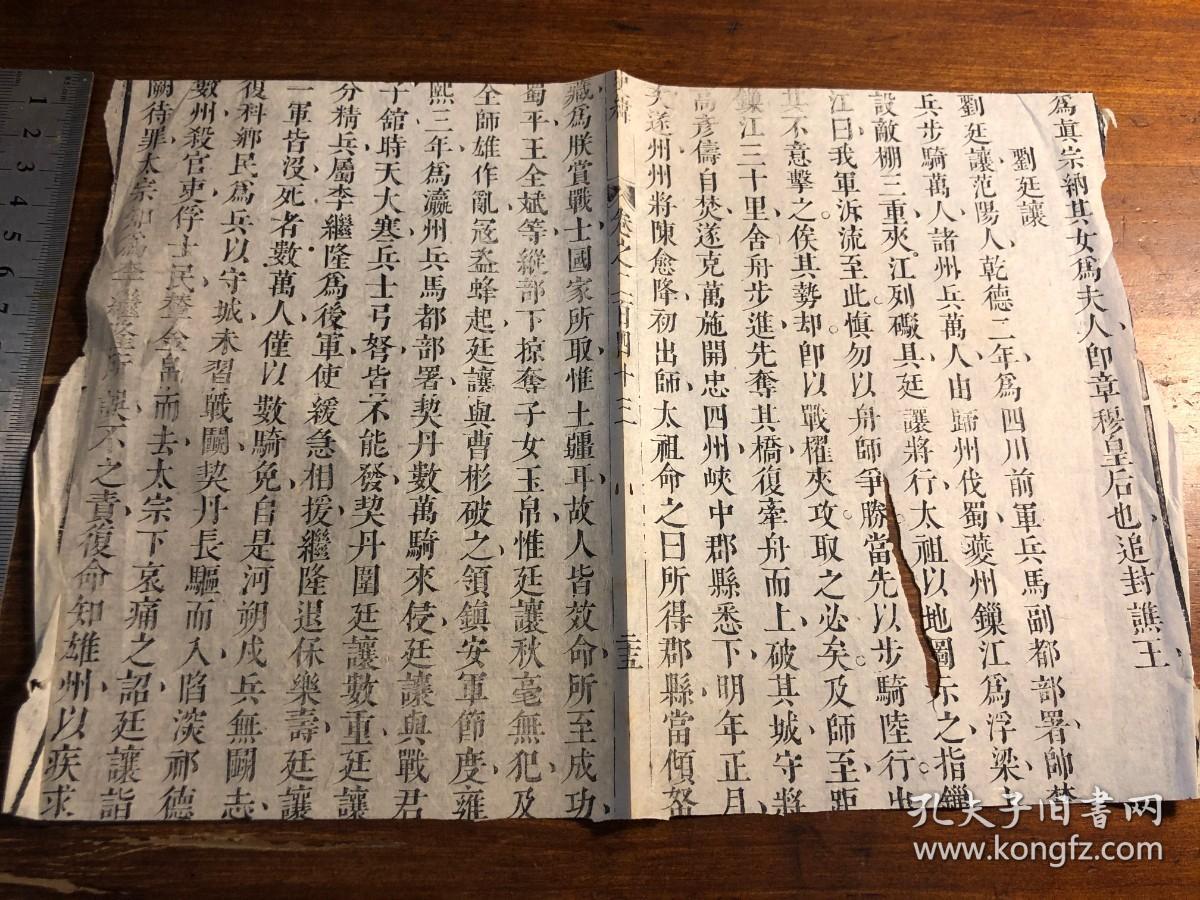 為眞宗納其女為夫人卽章穆皇后也追封譙王
劉廷讓
劉廷讓范陽人乾德二年為四川前軍兵馬副都部署帥
兵步騎萬人諸州兵萬人由歸州伐蜀夔州鏁江為浮梁
設敵棚三重夾江列礮具廷讓將行太祖以地圖示之指鏁
江曰我軍泝流至此慎勿以舟師爭勝當先以步騎陸行出
其不意擊之俟其勢却卽以戰櫂夾攻取之必矣及師至距
鏁江三十里舍舟步進先奪其橋復牽舟而上破其城守將
高彥儔自焚遂克萬施開忠四州峽中郡縣悉下明年正月
遂州州將陳愈降初出師太祖命之曰所得郡縣當傾帑
卷之二百四十三
八
三五
藏為朕賞戰士國家所取惟土疆耳故人皆效命所至成功
蜀平王全斌等縱部下掠奪子女玉帛惟廷讓秋毫無犯及
全師雄作亂寇盜蜂起廷讓與曹彬破之領鎮安軍節度雍
熙三年為瀛州兵馬都部署契丹數萬騎來侵廷讓與戰君
子舘時天大寒兵士弓弩皆不能發契丹圍廷讓數重廷讓
分精兵屬李繼隆為後軍使緩急相援繼隆退保樂壽廷讓
一軍皆沒死者數萬人僅以數騎免自是河朔戍兵無鬭志
復科鄉民為兵以守城未習戰鬭契丹長驅而入陷深祁德
數州殺官吏俘士民輦金帛而去太宗下哀痛之詔廷讓詣
闕待罪太宗知為李繼隆所誤不之責復命知雄州以疾求
孔夫子旧书网
www.kongfz.com
1
2
3
4
5
6
7